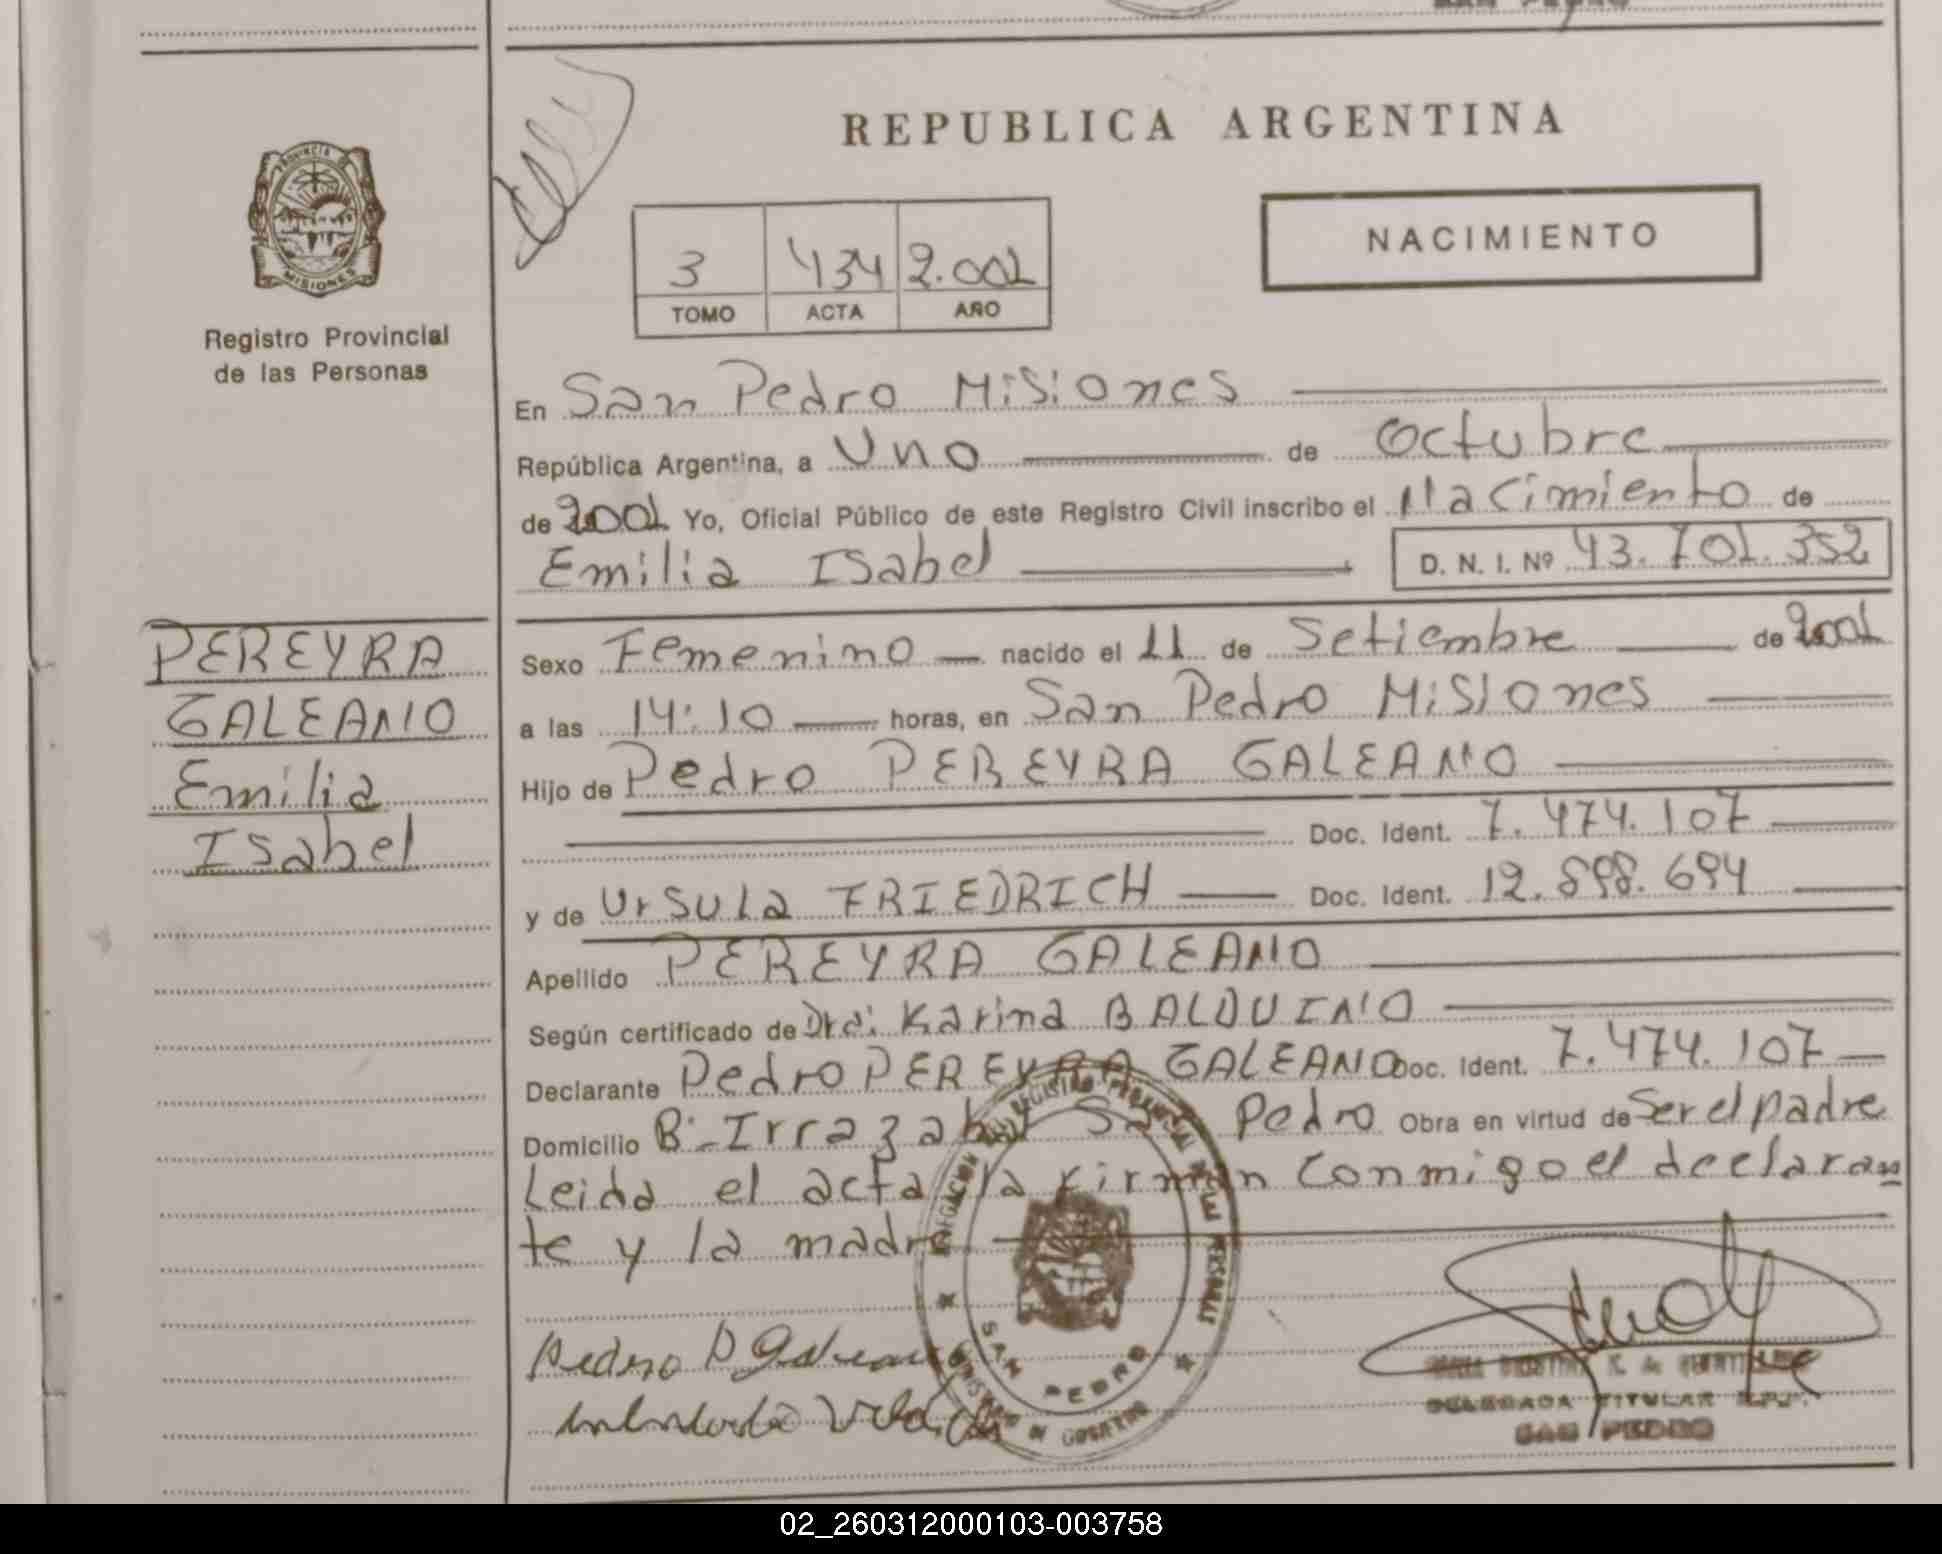 REPUBLICA ARGENTINA
PROVINCIA DE
MISIONES
Registro Provincial
de las Personas
NACIMIENTO
3 434 2.001
TOMO ACTA AÑO
En San Pedro Misiones
República Argentina, a Uno de Octubre
de 2001 Yo, Oficial Público de este Registro Civil inscribo el Nacimiento de
Emilia Isabel D. N. I. Nº 43.701.352
PEREYRA
GALEANO
Emilia
Isabel
Sexo Femenino nacido el 11 de Setiembre de 2001
a las 14:10 horas, en San Pedro Misiones
Hijo de Pedro PEREYRA GALEANO
Doc. Ident. 7.474.107
y de Ursula FRIEDRICH Doc. Ident. 12.898.694
Apellido PEREYRA GALEANO
Según certificado de Dra: Karina BALDUINO
Declarante Pedro PEREYRA GALEANO Doc. Ident. 7.474.107
Domicilio Bº-Irrazabal San Pedro Obra en virtud de Ser el padre
Leida el acta la firman conmigo el declaran
te y la madre
DELEGACION DEL REGISTRO PROVINCIAL DE LAS PERSONAS
SAN PEDRO
MINISTERIO DE GOBIERNO
Pedro P Galeano
DELEGADA TITULAR R.P.P.
SAN PEDRO
02_260312000103-003758